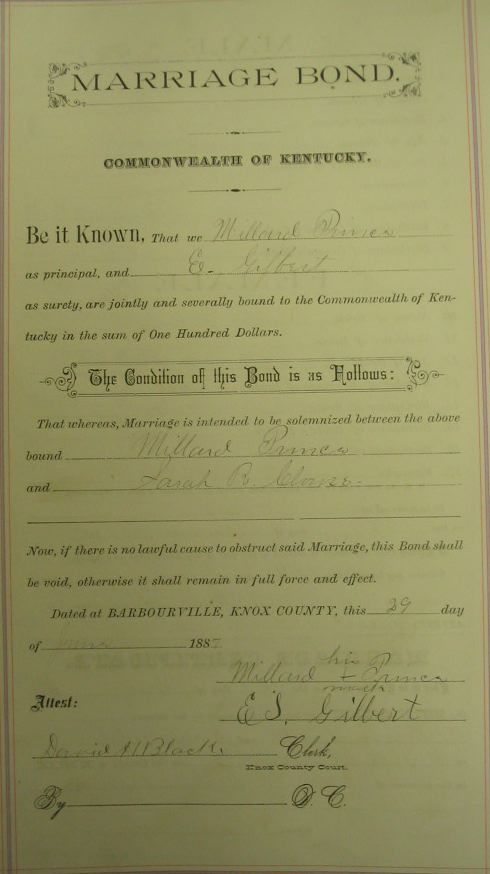 MARRIAGE BOND.
COMMONWEALTH OF KENTUCKY.
Be it Known, That we Millard Prince
as principal, and E. Gilbert
as surety, are jointly and severally bound to the Commonwealth of Ken-
tucky in the sum of One Hundred Dollars.
The Condition of this Bond is as Follows:
That whereas, Marriage is intended to be solemnized between the above
bound Millard Prince
and Sarah
Now, if there is no lawful cause to obstruct said Marriage, this Bond shall
be void, otherwise it shall remain in full force and effect.
Dated at BARBOURVILLE, KNOX COUNTY, this 29 day
of 1887
his
Millard + Prince
mark
Attest:
E S. Gilbert
David Black Clerk,
Knox County Court.
By D. C.